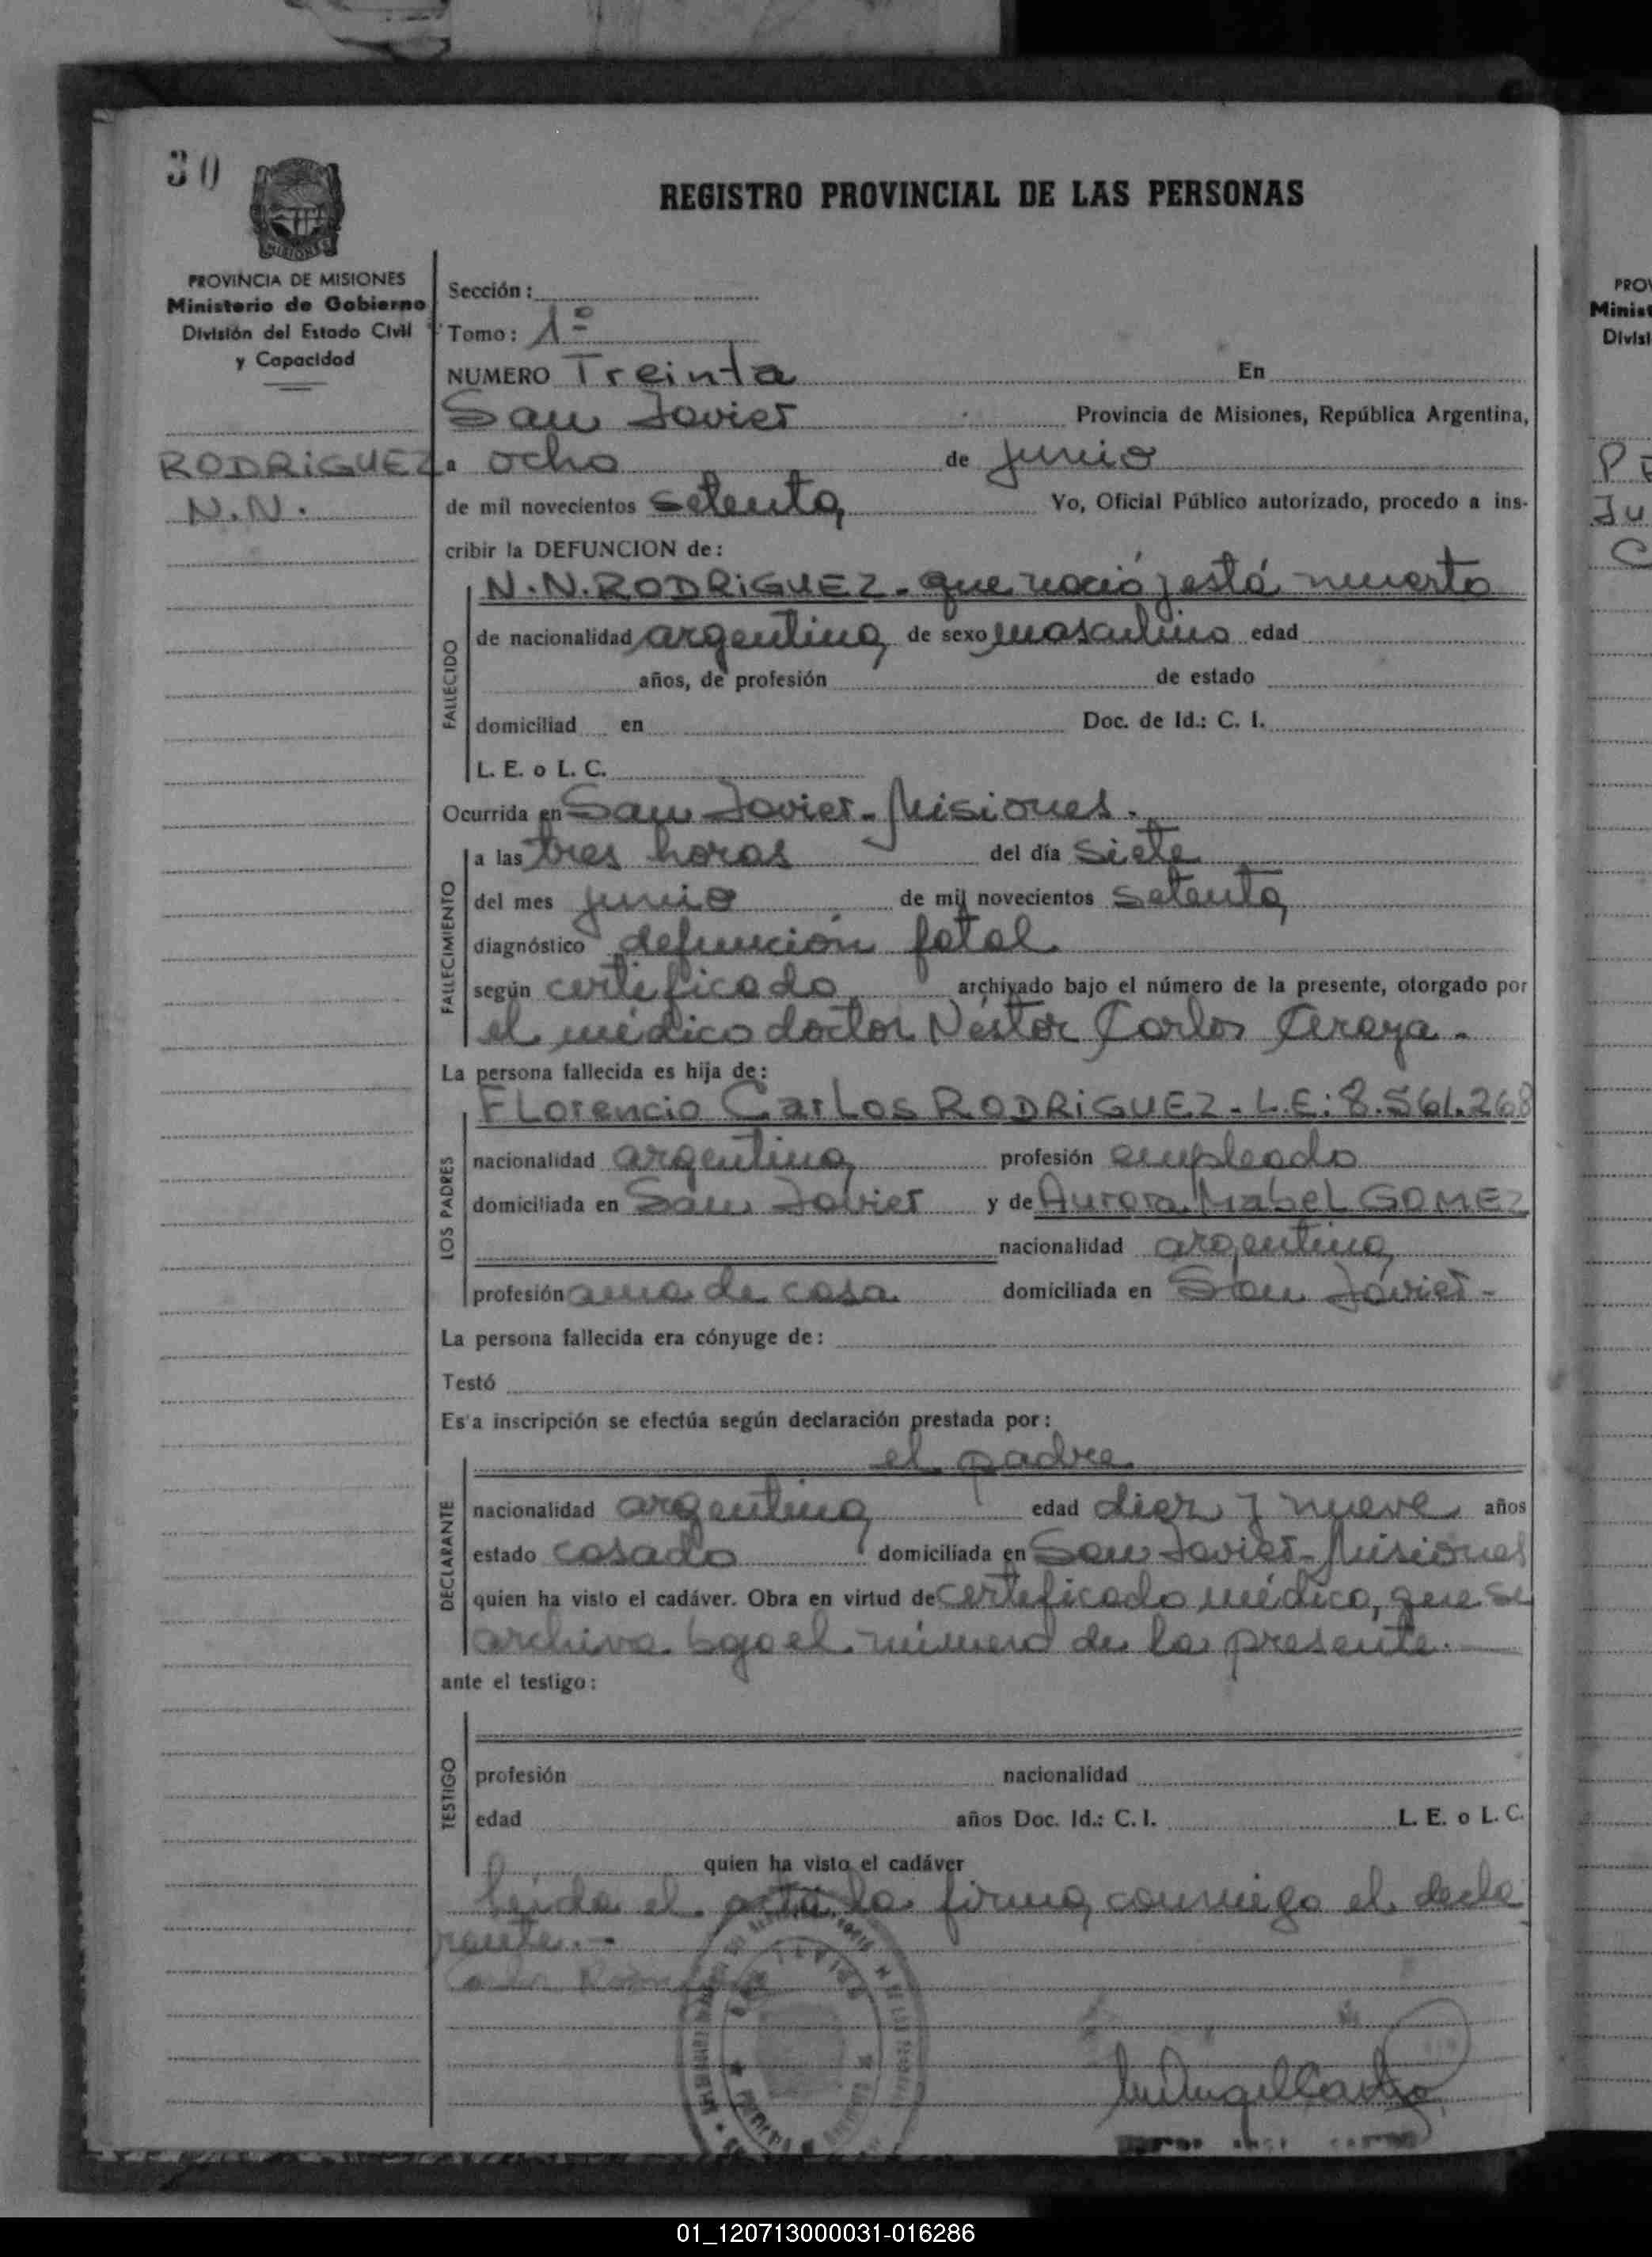 30
REGISTRO PROVINCIAL DE LAS PERSONAS
MISIONES
PROVINCIA DE MISIONES
Ministerio de Gobierno
División del Estado Civil
y Capacidad
RODRIGUEZ
N.N.
Sección:
Tomo: 1º
NUMERO Treinta En
San Javier Provincia de Misiones, República Argentina,
a ocho de junio
de mil novecientos setenta Yo, Oficial Público autorizado, procedo a ins-
cribir la DEFUNCION de:
N.N. RODRIGUEZ - que nació y está muerto
FALLECIDO
de nacionalidad argentina de sexo masculino edad
años, de profesión de estado
domiciliad en Doc. de Id.: C. I.
L. E. o L. C.
Ocurrida en San Javier - Misiones.
FALLECIMIENTO
a las tres horas del día siete
del mes junio de mil novecientos setenta
diagnóstico defunción fatal
según certificado archivado bajo el número de la presente, otorgado por
el médico doctor Néstor Carlos
La persona fallecida es hija de:
Florencio Carlos RODRIGUEZ - L.E: 8.561.268
LOS PADRES
nacionalidad argentina profesión empleado
domiciliada en San Javier y de Aurora Mabel GOMEZ
nacionalidad argentina
profesión ama de casa domiciliada en San Javier -
La persona fallecida era cónyuge de:
Testó
Es'a inscripción se efectúa según declaración prestada por:
el padre
DECLARANTE
nacionalidad argentina edad diez y nueve años
estado casado domiciliada en San Javier - Misiones
quien ha visto el cadáver. Obra en virtud de certificado médico, que se
archiva bajo el número de la presente.
ante el testigo:
TESTIGO
profesión nacionalidad
edad años Doc. Id.: C. I. L. E. o L. C.
quien ha visto el cadáver
Leída el acta la firma conmigo el decla
rante.-
PROV
Minist
Divisi
01_120713000031-016286